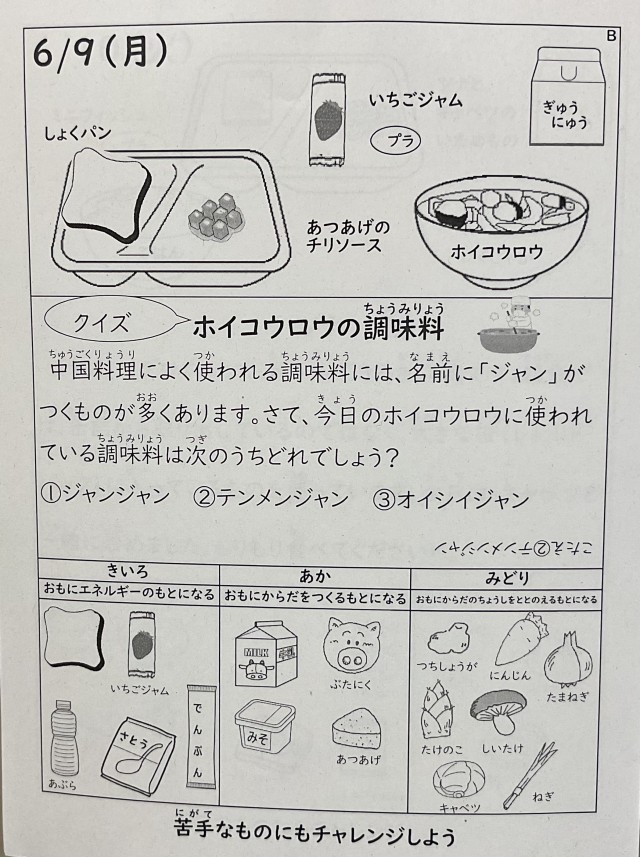 B
6/9(月)
いちごジャム
プラ
ぎゅう
にゅう
しょくパン
あつあげの
チリソース
ホイコウロウ
クイズ
ホイコウロウの調味料
ちょうみりょう
ちゅうごくりょうり つか ちょうみりょう なまえ
中国料理によく使われる調味料には、名前に「ジャン」が
おお きょう つか
つくものが多くあります。さて、今日のホイコウロウに使われ
ちょうみりょう つぎ
ている調味料は次のうちどれでしょう?
①ジャンジャン ②テンメンジャン ③オイシイジャン
こたえ②テンメンジャン
きいろ
おもにエネルギーのもとになる
いちごジャム
あぶら
さとう
でんぷん
あか
おもにからだをつくるもとになる
MILK
ぶたにく
みそ
あつあげ
みどり
おもにからだのちょうしをととのえるもとになる
つちしょうが
にんじん
たまねぎ
たけのこ
しいたけ
キャベツ
ねぎ
にがて
苦手なものにもチャレンジしよう